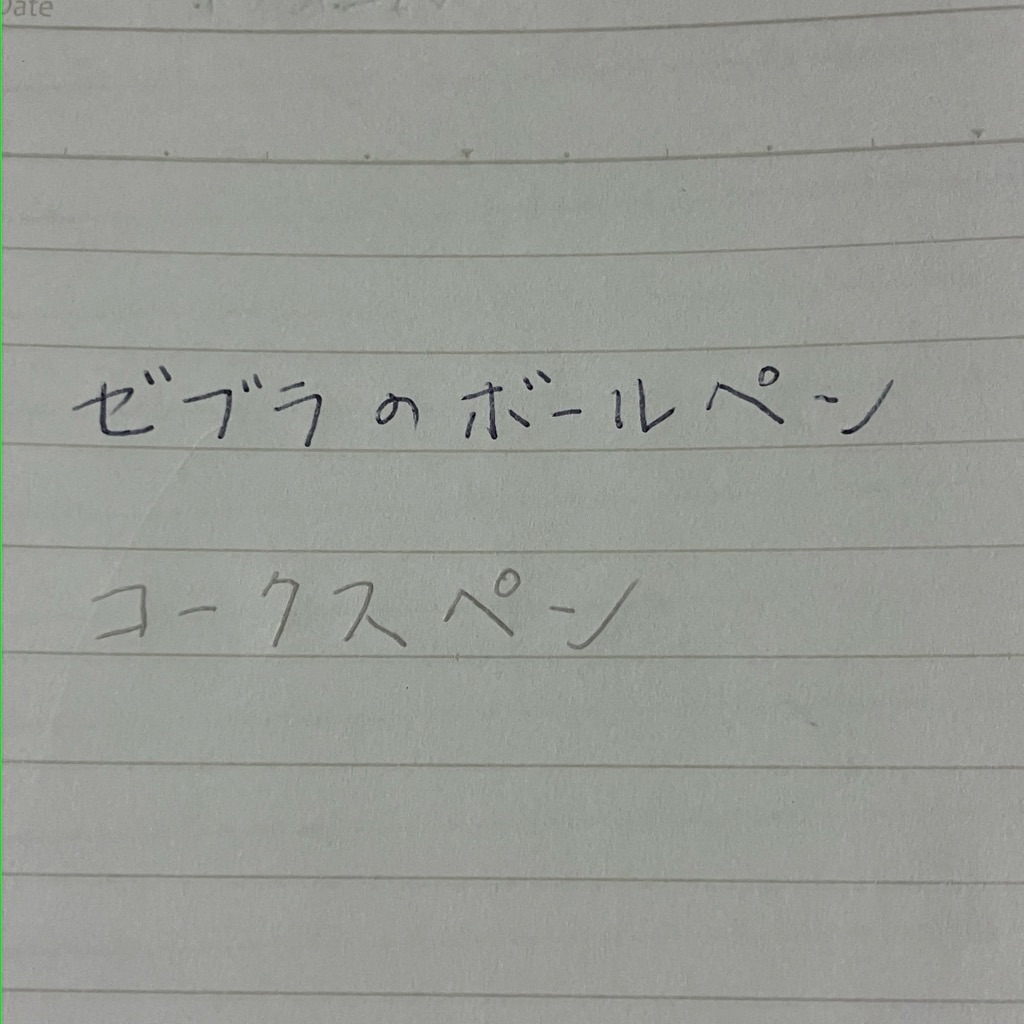 Date
ゼブラのボールペン
コークスペン